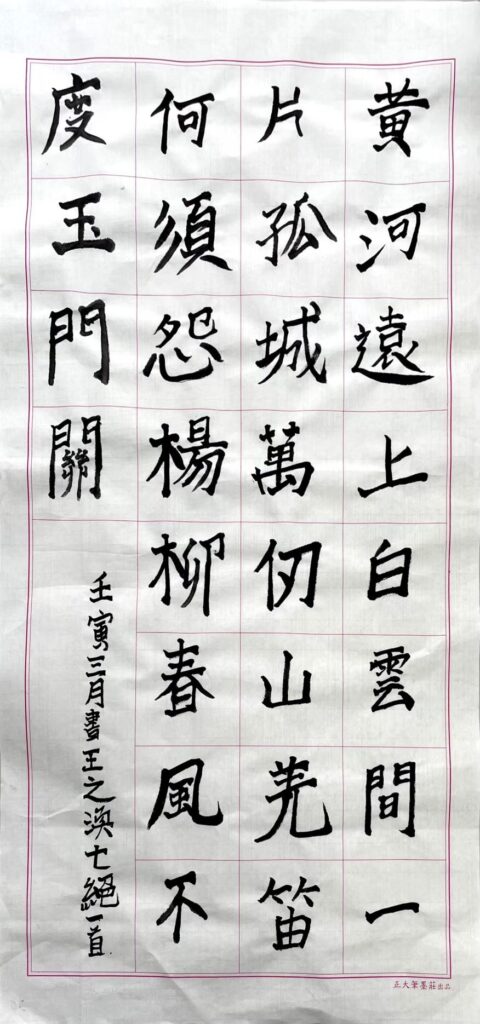 黃河遠上白雲間一
片孤城萬仞山羌笛
何須怨楊柳春風不
度玉門關
壬寅三月書王之渙七絕一首
正大筆墨莊出品